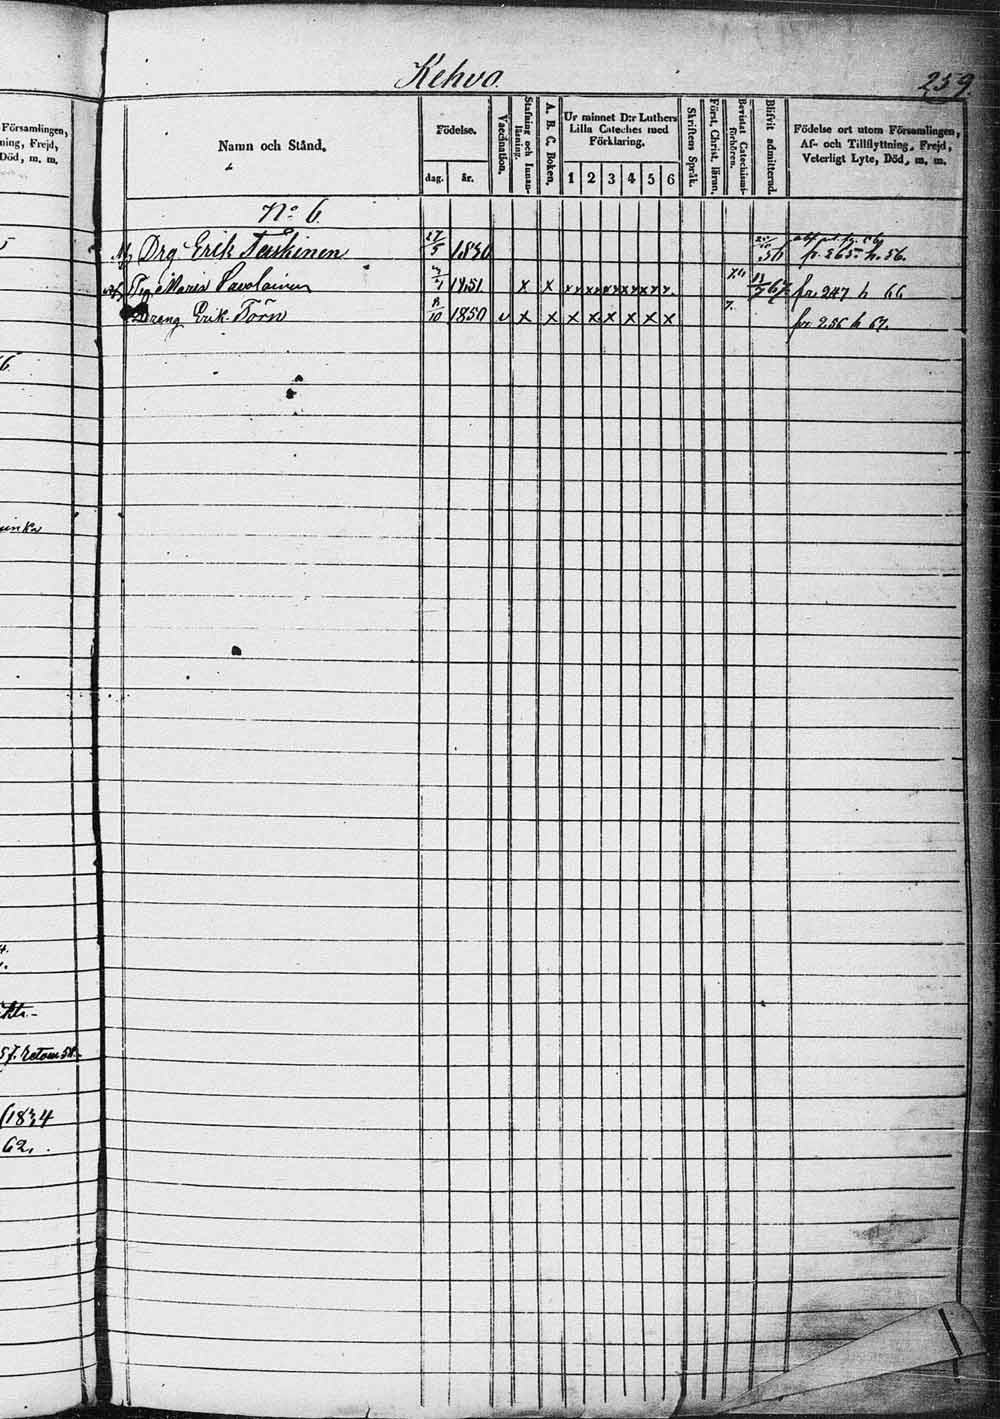 Kehvo.
259.
Församlingen,
ning, Frejd,
Död, m. m.
Namn och Stånd.
Födelse.
dag.
år.
Vaccination.
Stafning och Innan-
läsning.
A. B. C. Boken.
Ur minnet D:r Luthers
Lilla Cateches med
Förklaring.
1 2 3 4 5 6
Skriftens Språk.
Först. Christ. läran.
Bevistat Catechismi-
förhören.
Blifvit admitterad.
Födelse ort utom Församlingen,
Af- och Tillflyttning, Frejd,
Veterligt Lyte, Död, m. m.
No 6
Drg Erik Taskinen 27/5 1830 56 fr. 265. h. 56.
Maria Savolainen 1851 x x x x x x x x x x x x 67. fr 247 h 66
Dräng Erik Törn 8/10 1850 v x x x x x x x x 7. fr 256 h 67.
57. retour 58.
(1834
62.